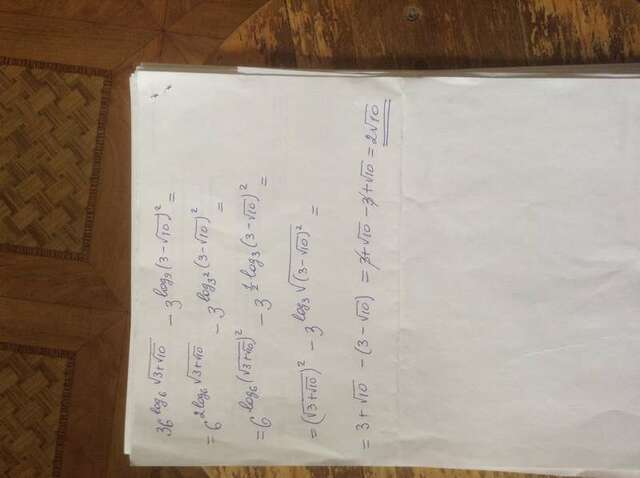 36^{log_6 √(3+√10)} - 3^{log_9 (3-√10)^2} =
= 6^{2log_6 √(3+√10)} - 3^{log_{3^2} (3-√10)^2} =
= 6^{log_6 (√(3+√10))^2} - 3^{1/2 log_3 (3-√10)^2} =
= (√(3+√10))^2 - 3^{log_3 √((3-√10)^2)} =
= 3+√10 - (3-√10) = 3+√10 - 3+√10 = 2√10